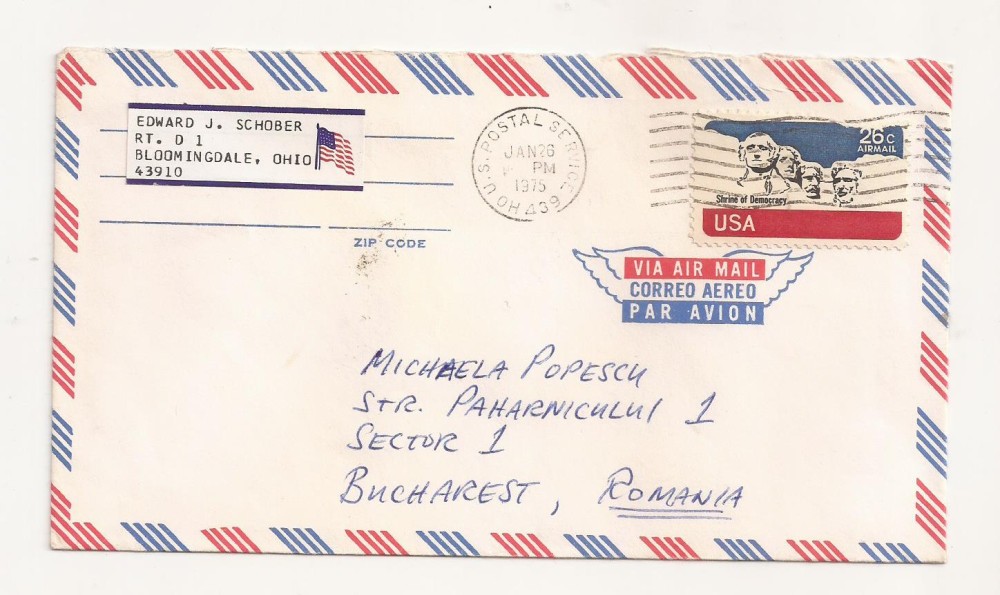 EDWARD J. SCHOBER
RT. D 1
BLOOMINGDALE, OHIO
43910
ZIP CODE
U.S. POSTAL SERVICE
JAN 26
PM
1975
OH 439
26c
AIRMAIL
Shrine of Democracy
USA
VIA AIR MAIL
CORREO AEREO
PAR AVION
MICHAELA POPESCU
STR. PAHARNICULUI 1
SECTOR 1
BUCHAREST, ROMANIA